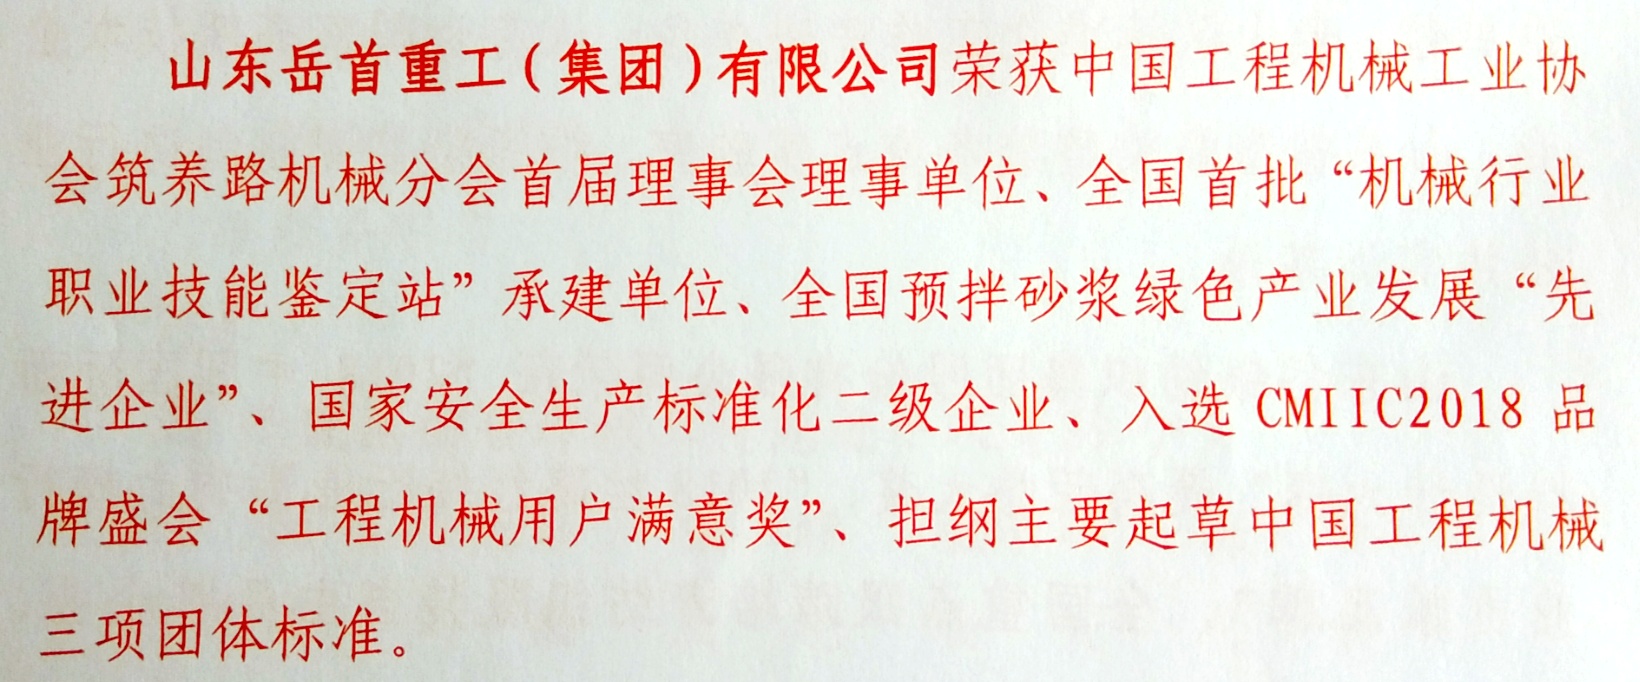 山东岳首重工(集团)有限公司荣获中国工程机械工业协
会筑养路机械分会首届理事会理事单位、全国首批“机械行业
职业技能鉴定站”承建单位、全国预拌砂浆绿色产业发展“先
进企业”、国家安全生产标准化二级企业、入选 CMIIC2018 品
牌盛会“工程机械用户满意奖”、担纲主要起草中国工程机械
三项团体标准。